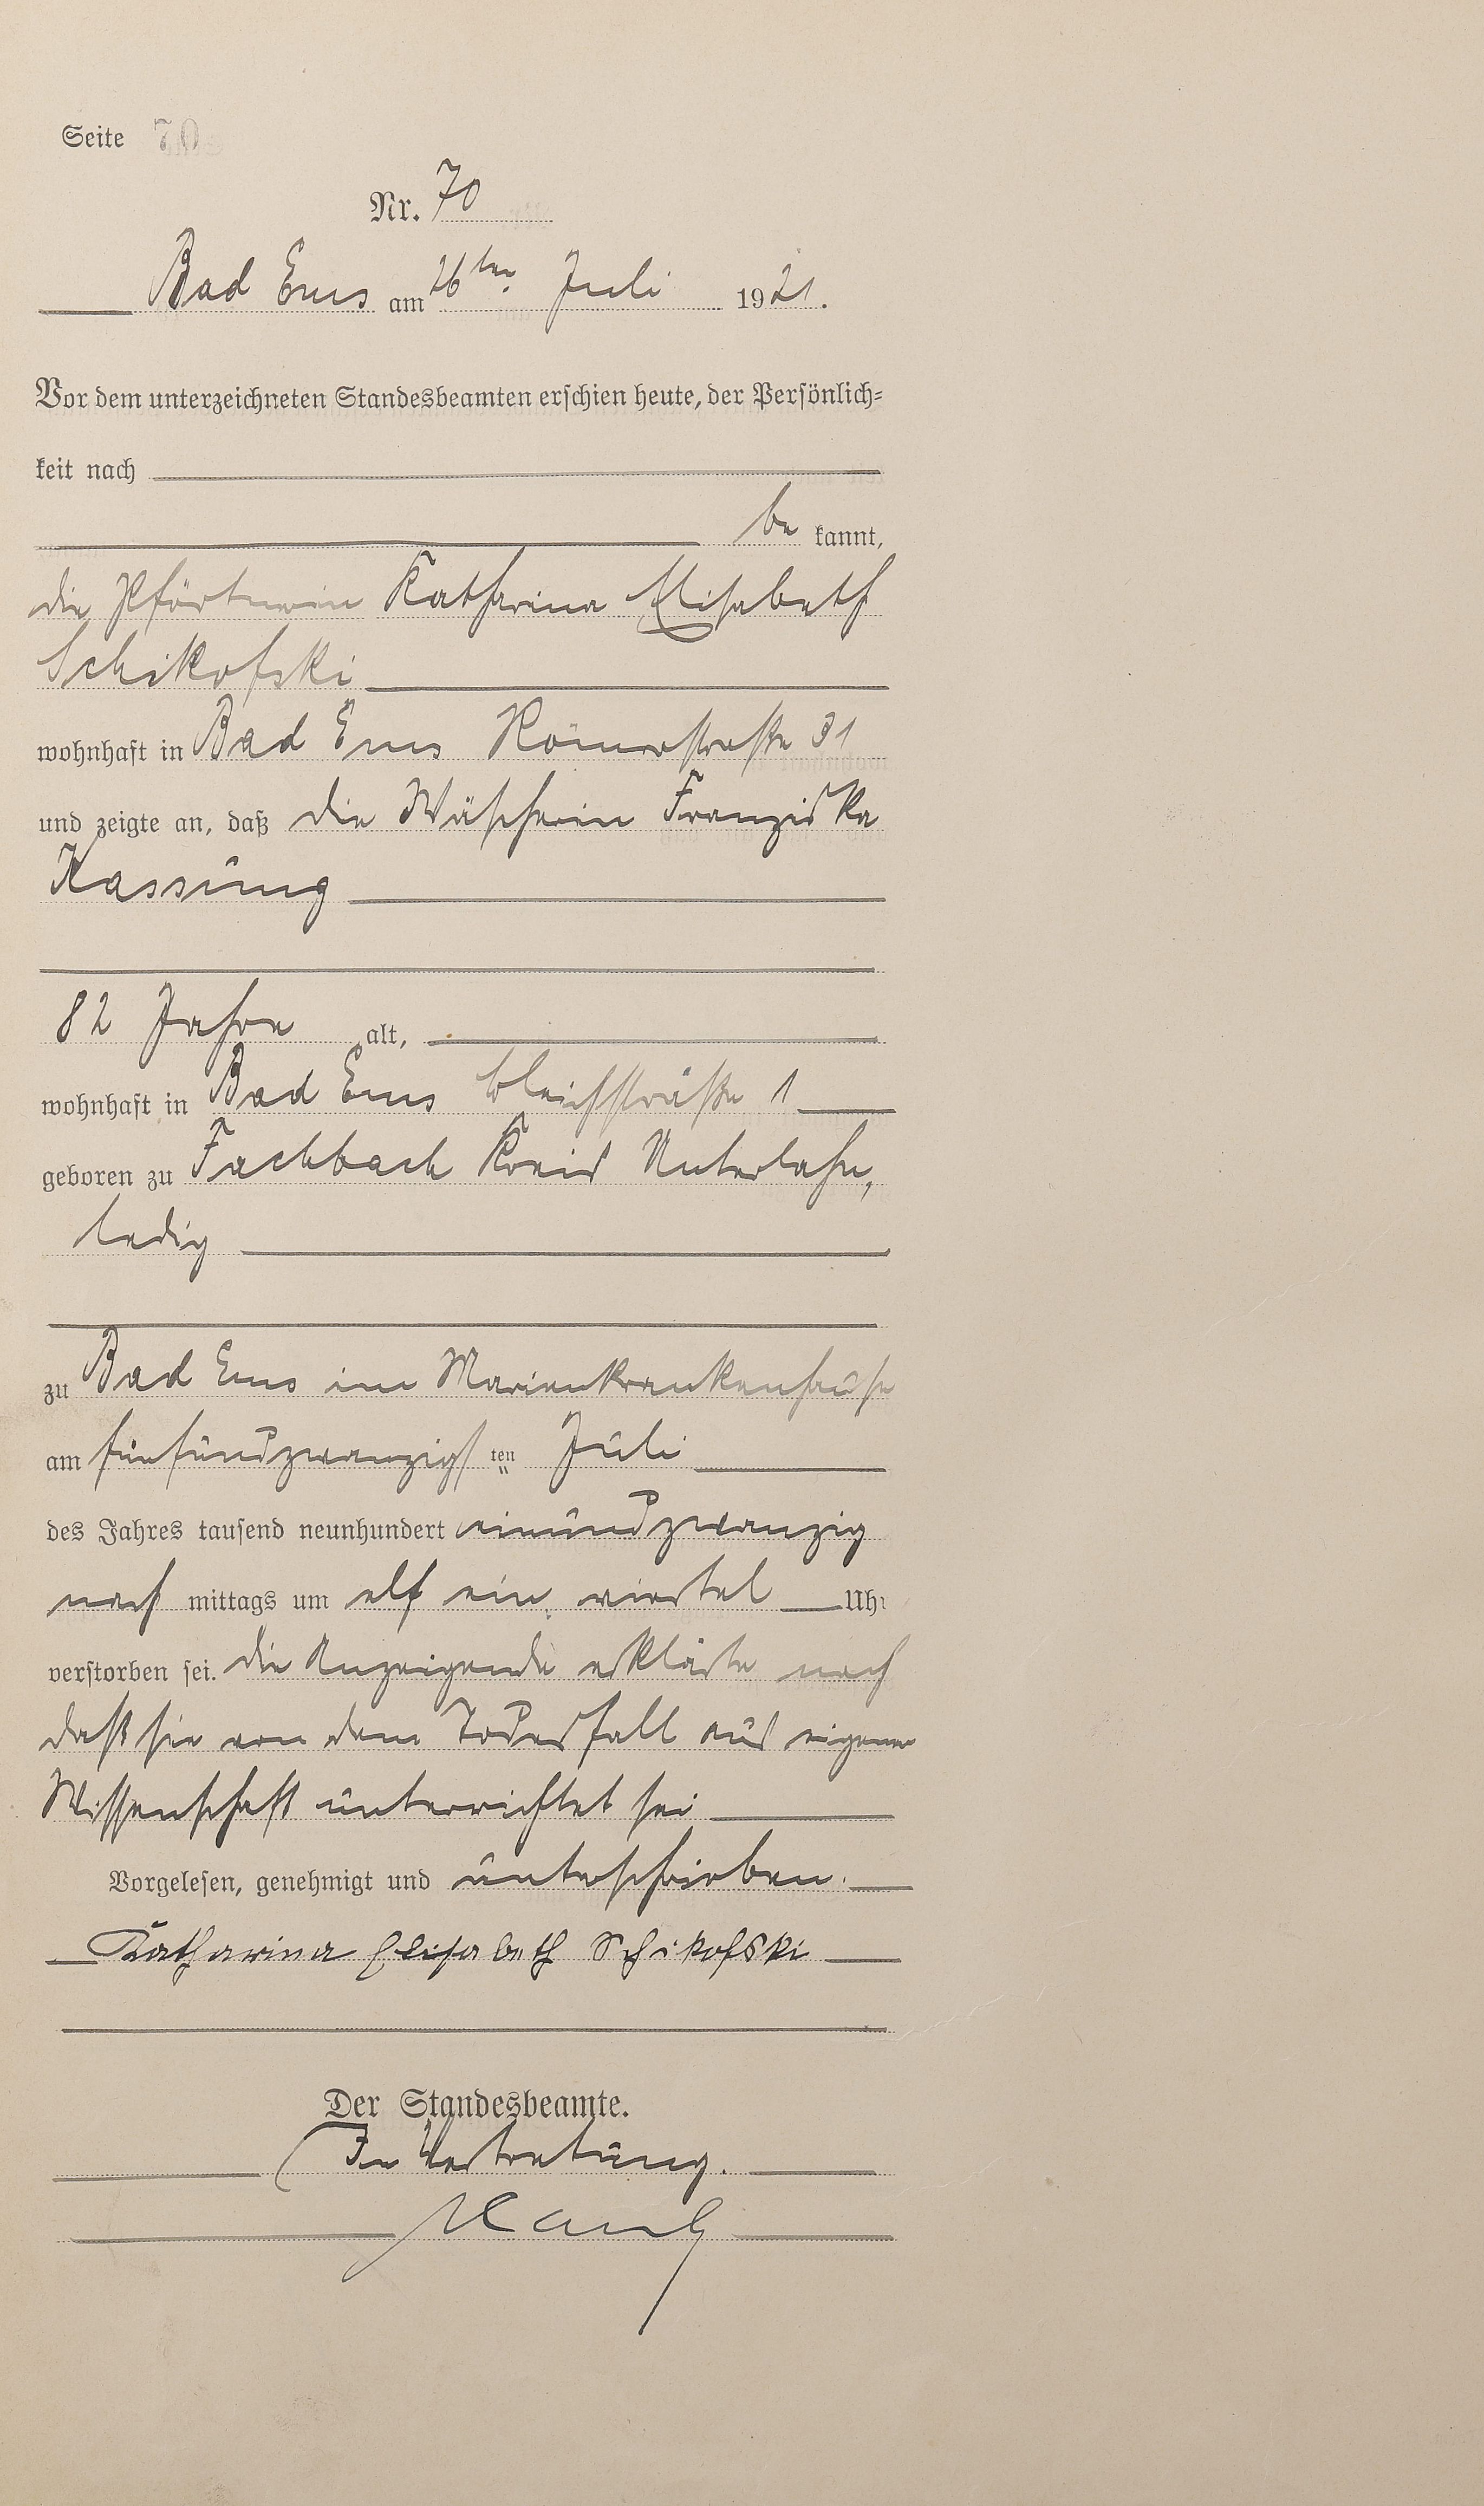 Seite 70
Nr. 70
Bad Ems am 26ten Juli 1921.
Vor dem unterzeichneten Standesbeamten erschien heute, der Persönlich=
keit nach
be kannt,
die Pförtnerin Katharina Elisabeth
Schikofski
wohnhaft in Bad Ems Römerstraße 31
und zeigte an, daß die Wäscherin Franziska
Kassung
82 Jahre alt,
wohnhaft in Bad Ems Bleichstraße 1
geboren zu Fachbach Kreis Unterlahn,
ledig
zu Bad Ems im Marienkrankenhause
am fünfundzwanzigsten Juli
des Jahres tausend neunhundert einundzwanzig
nach mittags um elf ein viertel Uhr
verstorben sei. Die Anzeigende erklärte noch
daß sie von dem Todesfall aus eigener
Wissenschaft unterrichtet sei
Vorgelesen, genehmigt und unterschrieben.
Katharina Elisabeth Schikofski
Der Standesbeamte.
In Vertretung.